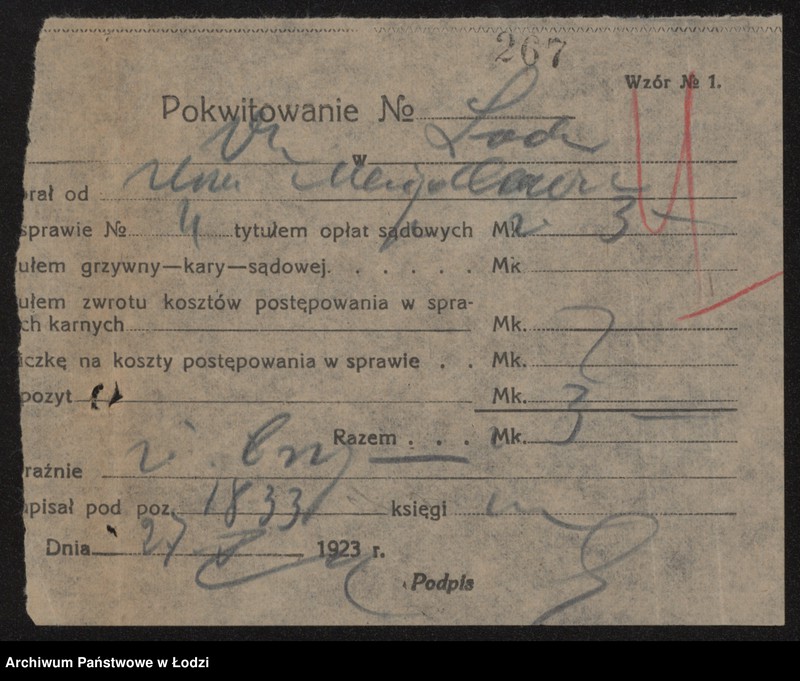 267
Wzór № 1.
Pokwitowanie №
w Łodzi
rał od
sprawie № 4 tytułem opłat sądowych Mk. 3 —
ułem grzywny—kary—sądowej. . . . . . Mk
ułem zwrotu kosztów postępowania w spra-
ch karnych Mk.
iczkę na koszty postępowania w sprawie . . Mk.
pozyt Mk.
Razem . . . Mk. 3 —
raźnie
pisał pod poz. 1833 księgi
Dnia 27 1923 r.
Podpis
Archiwum Państwowe w Łodzi